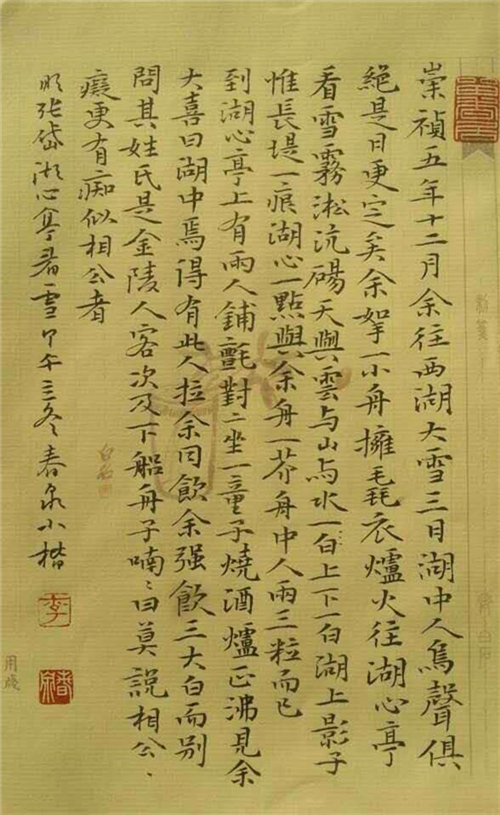 崇禎五年十二月余往西湖大雪三日湖中人鳥聲俱
絕是日更定矣余拏一小舟擁毳衣爐火往湖心亭
看雪霧淞沆碭天與雲与山与水一白上下一白湖上影子
惟長堤一痕湖心一點與余舟一芥舟中人兩三粒而已
到湖心亭上有兩人鋪氈對〻坐一童子燒酒爐正沸見余
大喜曰湖中焉得有此人拉余同飲余强飲三大白而別
問其姓氏是金陵人客次及下船舟子喃〻曰莫說相公〻
癡更有痴似相公者
明張岱湖心亭看雪甲午三冬春泉小楷
李
白石
用箋